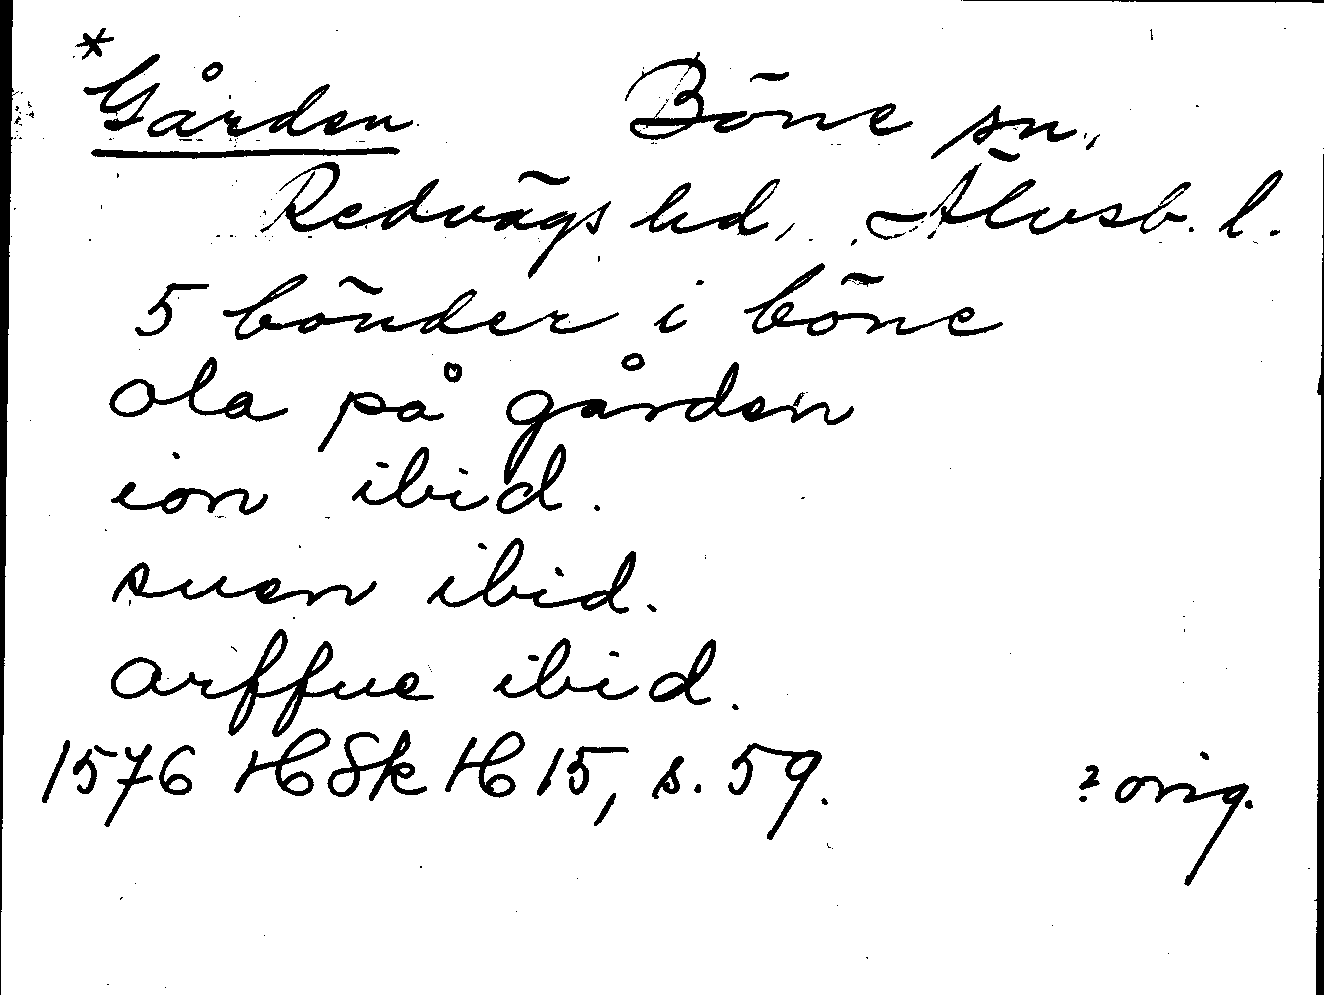 *Gården Böne sn.,
Redvägs hd, Älvsb. l.
5 bönder i böne
ola på gården
ion ibid.
suen ibid.
arffue ibid.
1576 HSkH 15, s. 59. ? orig.